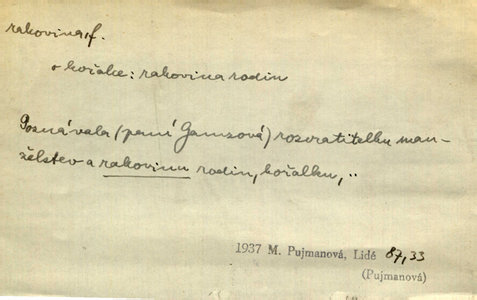 rakovina, f.
o kořalce: rakovina rodin
Poznávala (paní Gamzová) rozvratitelku man-
želstev a rakovinu rodin, kořalku, ..
1937 M. Pujmanová, Lidé 87,33
(Pujmanová)